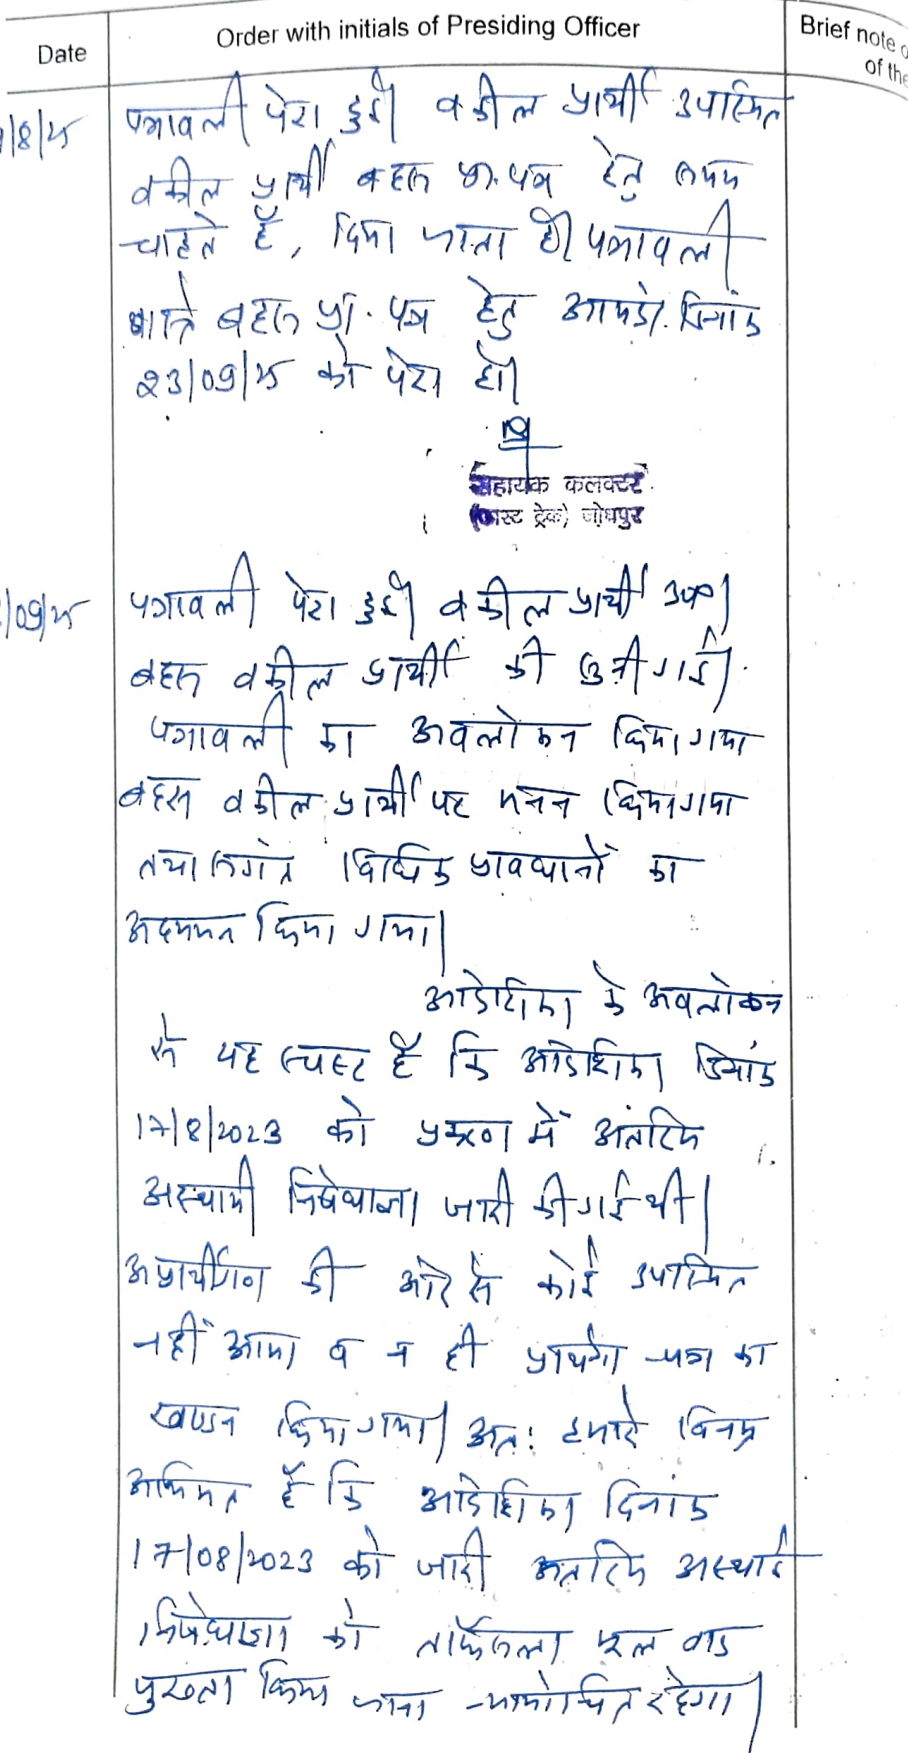 Date
Order with initials of Presiding Officer
Brief note
of the
/8/25
पत्रावली पेश हुई। वकील प्रार्थी उपस्थित
वकील प्रार्थी बहस प्रा. पत्र हेतु समय
चाहते हैं, दिया जाता है। पत्रावली
वास्ते बहस प्रा. पत्र हेतु आगामी दिनांक
23/09/25 को पेश हो।
सहायक कलक्टर
(फास्ट ट्रेक) जोधपुर
/09/25
पत्रावली पेश हुई। वकील प्रार्थी उप।
बहस वकील प्रार्थी की सुनी गई।
पत्रावली का अवलोकन किया गया
बहस वकील प्रार्थी पर मनन किया गया
तथा संगत विधिक प्रावधानों का
अध्ययन किया गया।
आदेशिका के अवलोकन
से यह स्पष्ट है कि आदेशिका दिनांक
17/8/2023 को प्रकरण में अंतरिम
अस्थायी निषेधाज्ञा जारी की गई थी।
अप्रार्थीगण की ओर से कोई उपस्थित
नहीं आया व न ही प्रार्थना पत्र का
खण्डन किया गया। अतः हमारे विनम्र
अभिमत है कि आदेशिका दिनांक
17/08/2023 को जारी अंतरिम अस्थाई
निषेधाज्ञा को ताफैसला मूल वाद
पुख्ता किया जाना न्यायोचित रहेगा।